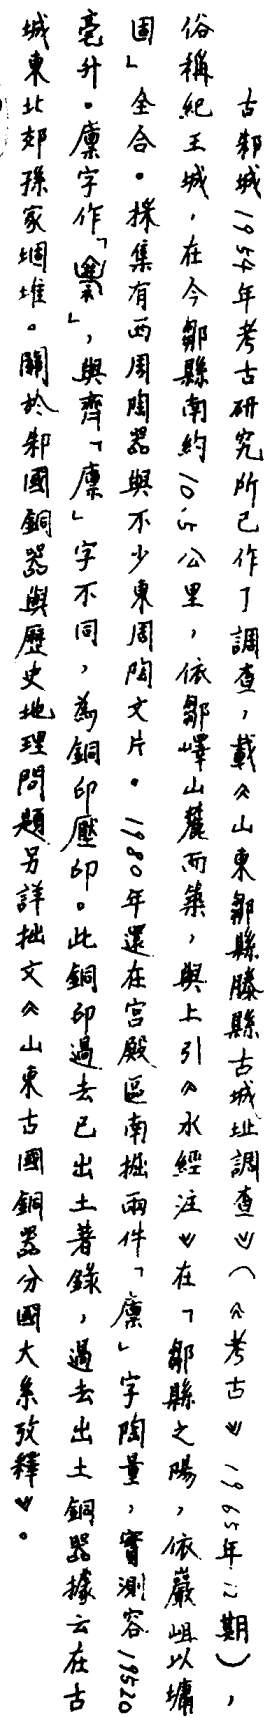 古邾城1954年考古研究所已作了調查，載《山東鄒縣滕縣古城址調查》（《考古》1965年12期），
俗稱紀王城，在今鄒縣南約10.5公里，依鄒嶧山麓而築，與上引《水經注》在「鄒縣之陽，依巖岨以墉
固」全合。採集有西周陶器與不少東周陶文片。1980年還在宮殿區南掘兩件「廩」字陶量，實測容19520
毫升。廩字作「」，與齊「廩」字不同，為銅印壓印。此銅印過去已出土著錄，過去出土銅器據云在古
城東北郊孫家堌堆。關於邾國銅器與歷史地理問題另詳拙文《山東古國銅器分國大系攷釋》。